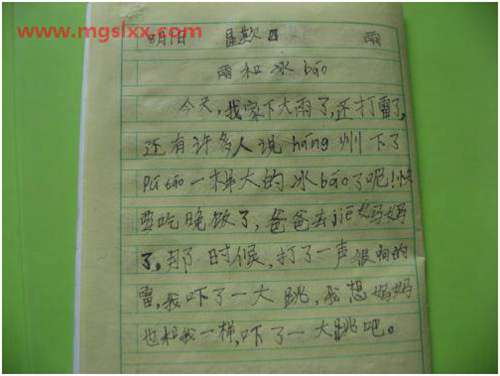 www.mgslxx.com
明阳 星款日 雨
雨和冰báo
今天,我家下大雨了,还打雷了,
还有许多人说háng州下了
Pú táo一样大的冰báo了呢!快
要吃晚饭了,爸爸去jiē妈妈
了,那时候,打了一声很响的
雷,我吓了一大跳,我想妈妈
也和我一样,吓了一大跳吧。